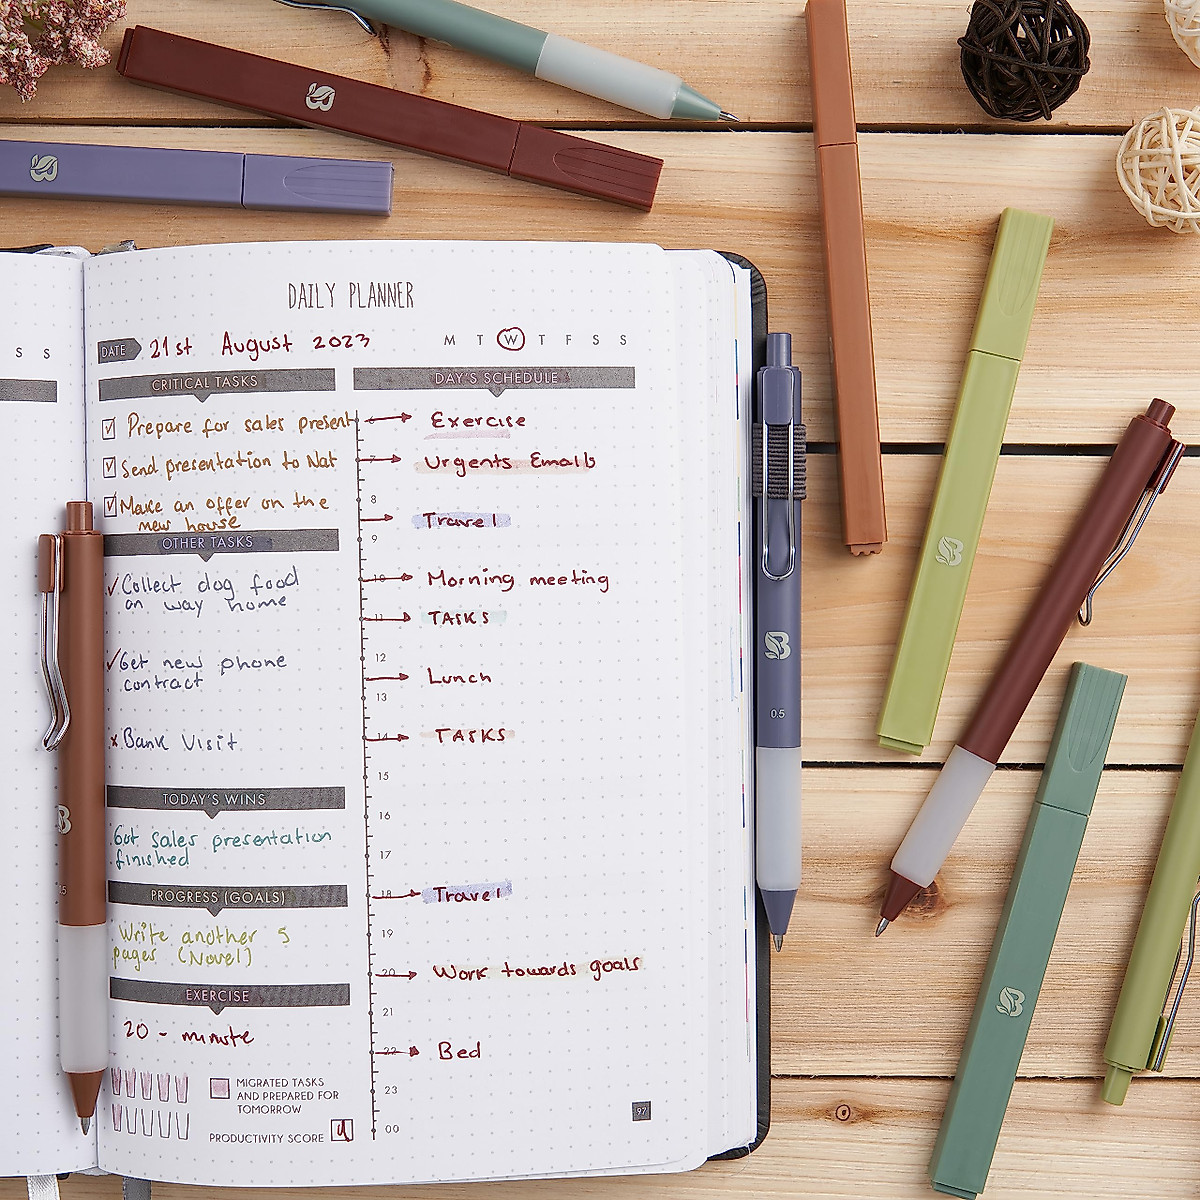 DAILY PLANNER
S S
DATE 21st August 2023
M T W T F S S
CRITICAL TASKS
Prepare for sales present
Send presentation to Nat
Make an offer on the
new house
OTHER TASKS
Collect dog food
on way home
Get new phone
contract
x Bank Visit
TODAY'S WINS
Got sales presentation
finished
PROGRESS (GOALS)
Write another 5
pages (Novel)
EXERCISE
20 - minute
MIGRATED TASKS
AND PREPARED FOR
TOMORROW
PRODUCTIVITY SCORE
DAY'S SCHEDULE
Exercise
7 Urgents Emails
8
Travel
9
10 Morning meeting
11 TASKS
12
Lunch
13
14 TASKS
15
16
17
18 Travel
19
20 Work towards goals
21
22 Bed
23
00
97
B
B
B
0.5
B
B